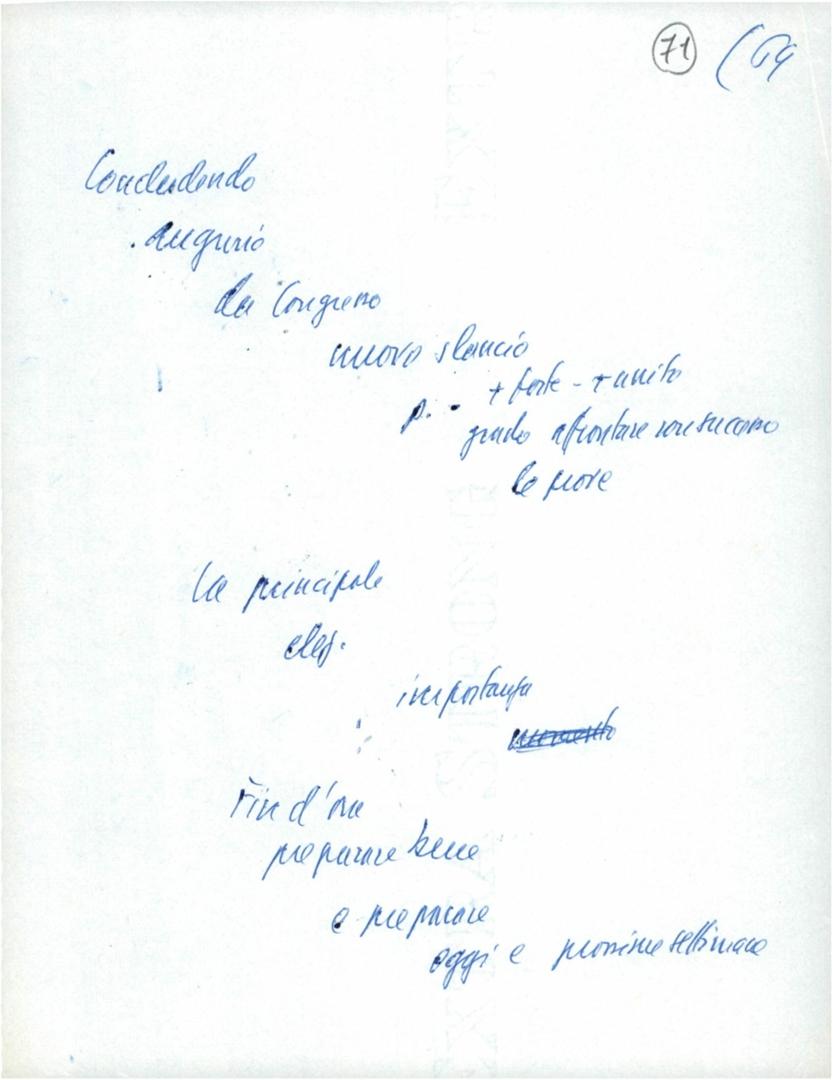 71 (64
Concludendo
augurio
da Congresso
nuovo slancio
+ forte - + unito
p.
grado affrontare con successo
le prove
La principale
elez.
importanza
Fin d'ora
preparare bene
e preparare
oggi e prossime settimane